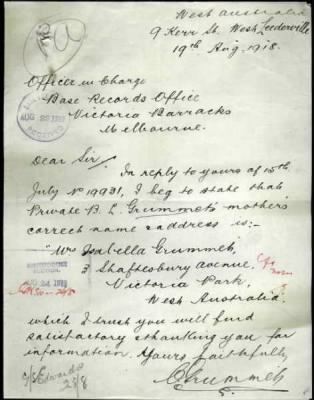 West Australia
9 Kerr St. West Leederville
19th Aug. 1918.
Officer in Charge
Base Records Office
Victoria Barracks
Melbourne.
AUG 1918
RECEIVED
Dear Sir/
In reply to yours of 15th
July No 19931, I beg to state that
Private B. L. Grummet's mother's
correct name & address is:-
"Mrs Isabella Grummet,
3 Shaftesbury Avenue,
Victoria Park,
West Australia.
AUG 24 1918
which I trust you will find
satisfactory & thanking you for
information. Yours faithfully,
C Grummet
Edwards
28/8